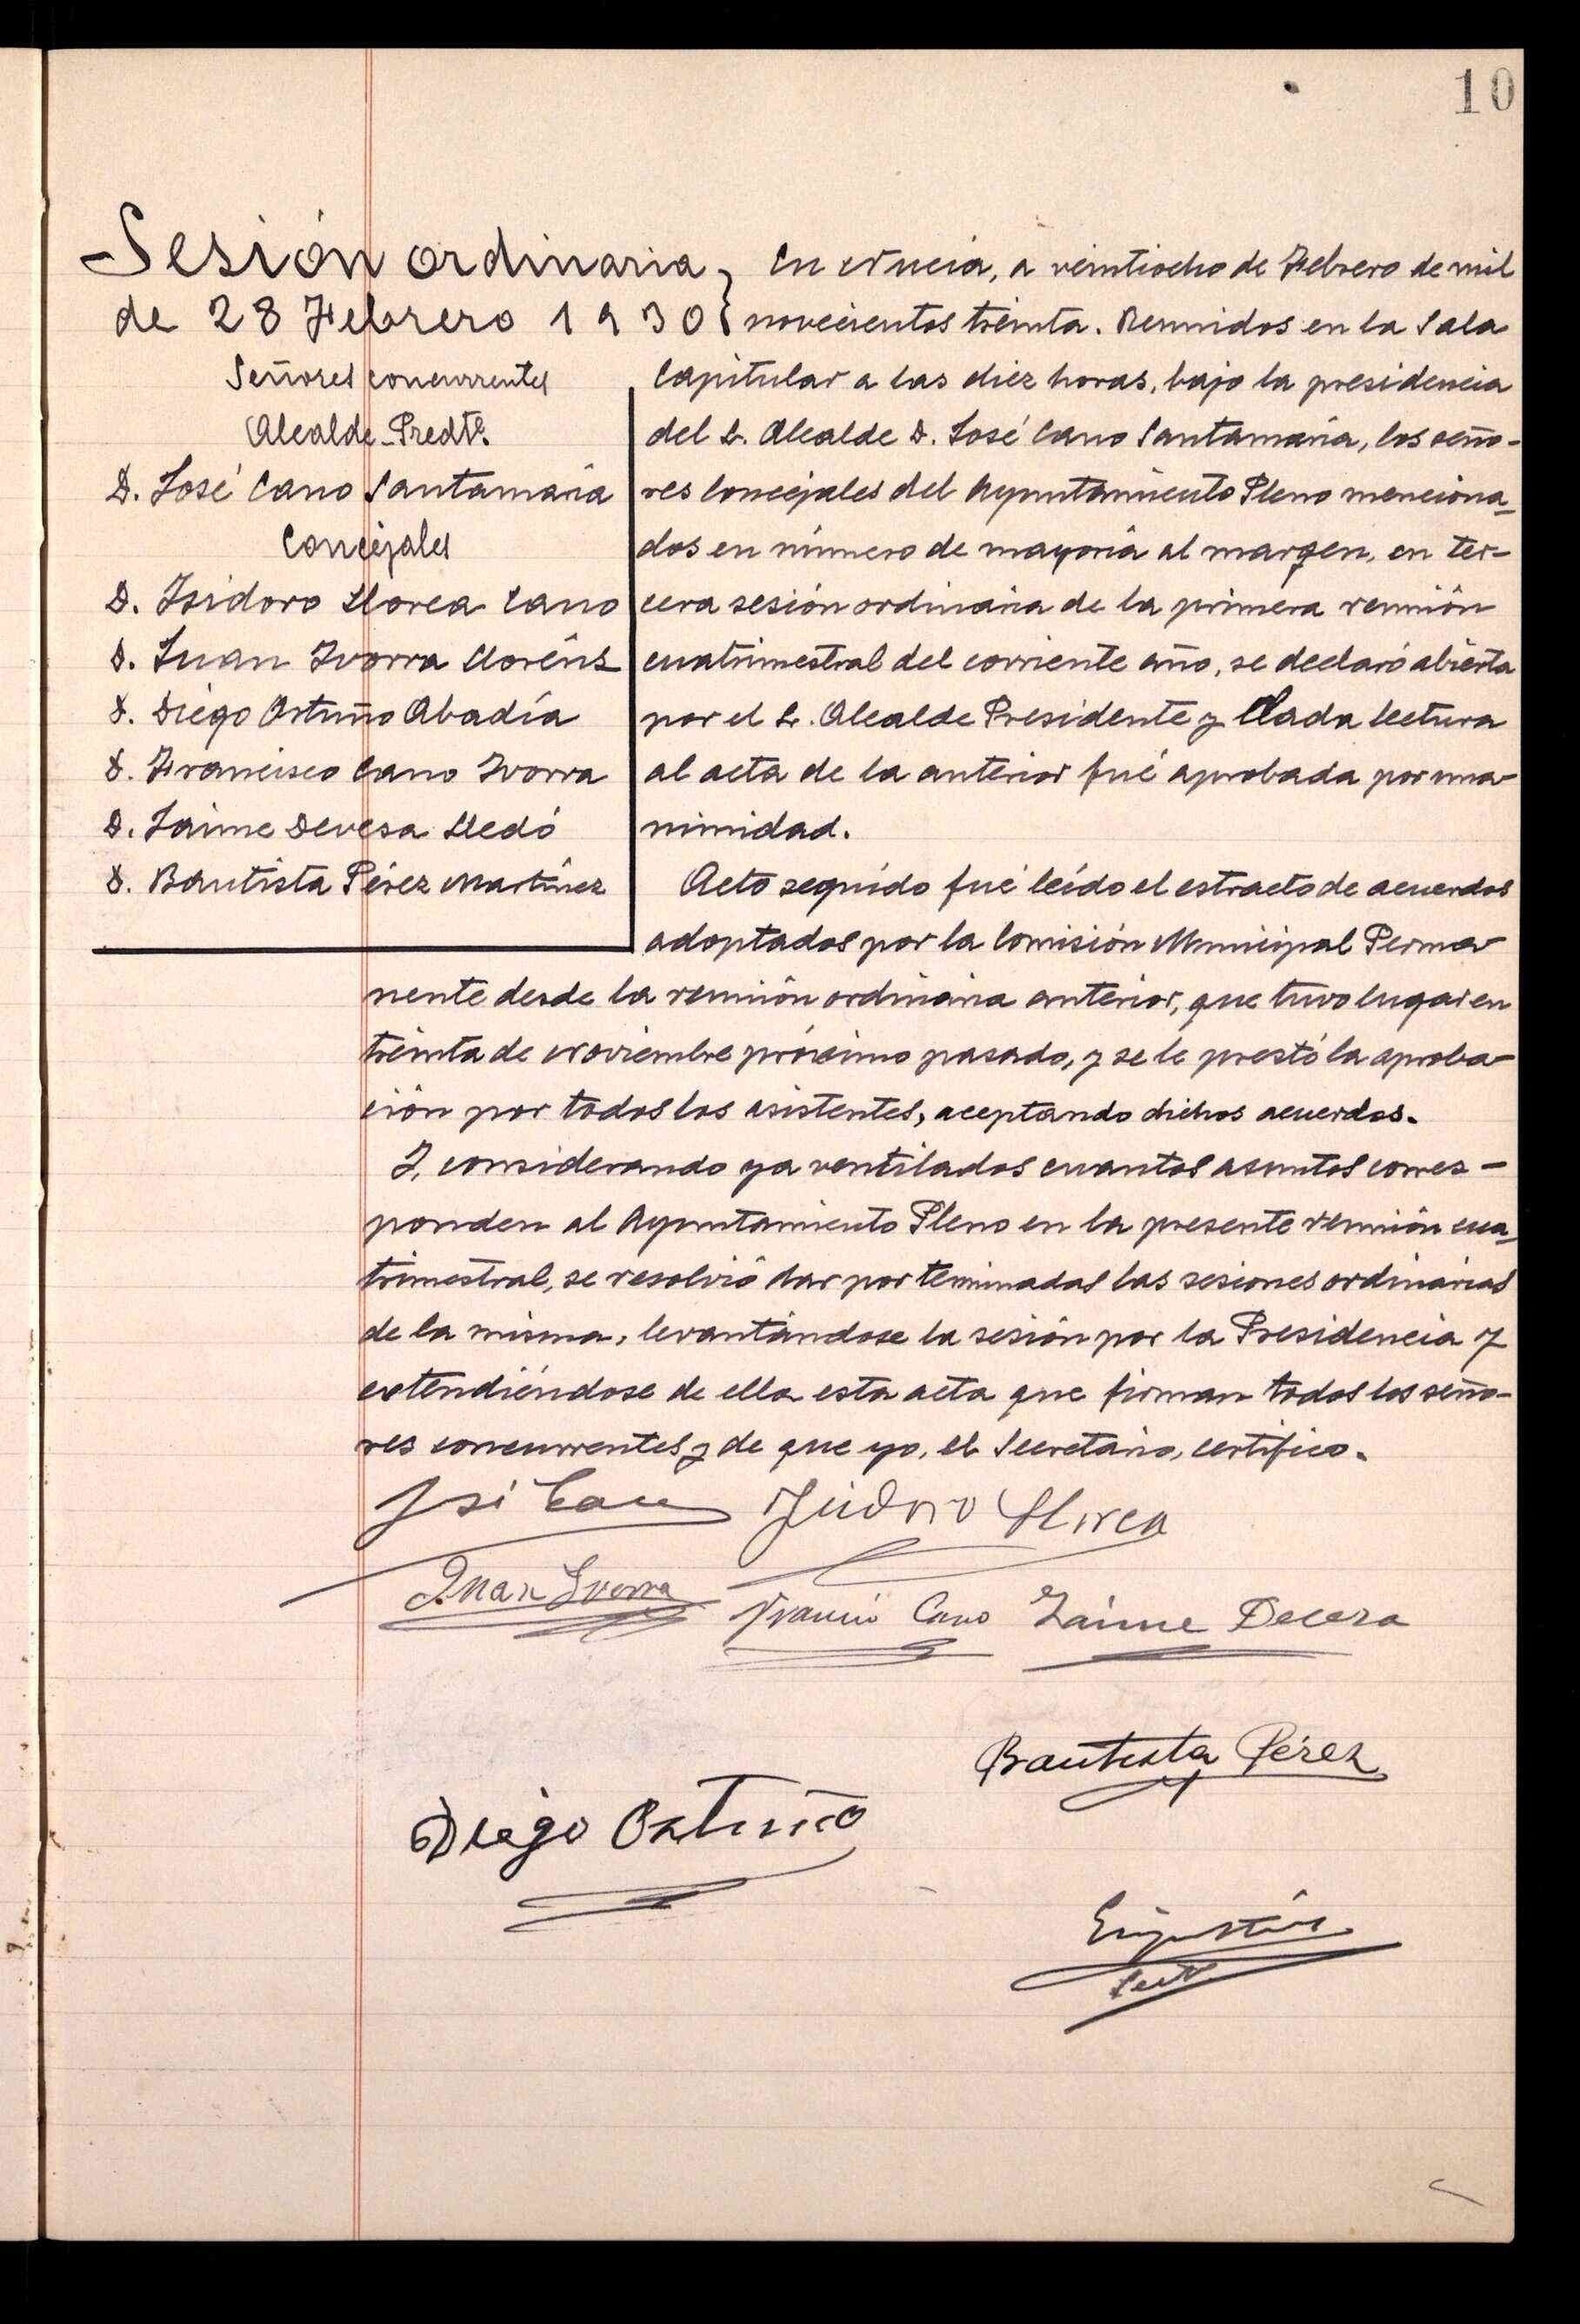 10
Sesión ordinaria
de 28 Febrero 1930
Señores concurrentes
Alcalde-Predte.
D. José Cano Santamaría
Concejales
D. Isidoro Llorca Cano
D. Juan Ivorra Lloréns
D. Diego Ortuño Abadía
D. Francisco Cano Ivorra
D. Jaime Devesa Lledó
D. Bautista Pérez Martínez
En Nucia, a veintiocho de Febrero de mil
novecientos treinta. Reunidos en la Sala
Capitular a las diez horas, bajo la presidencia
del S. Alcalde D. José Cano Santamaría, los seño-
res Concejales del Ayuntamiento Pleno menciona-
dos en número de mayoría al margen, en ter-
cera sesión ordinaria de la primera reunión
cuatrimestral del corriente año, se declaró abierta
por el S. Alcalde Presidente y dada lectura
al acta de la anterior fué aprobada por una-
nimidad.
Acto seguido fué leído el estracto de acuerdos
adoptados por la Comisión Municipal Perma-
nente desde la reunión ordinaria anterior, que tuvo lugar en
treinta de Noviembre próximo pasado, y se le prestó la aproba-
ción por todos los asistentes, aceptando dichos acuerdos.
Y, considerando ya ventilados cuantos asuntos corres-
ponden al Ayuntamiento Pleno en la presente reunión cua-
trimestral, se resolvió dar por terminadas las sesiones ordinarias
de la misma, levantándose la sesión por la Presidencia y
extendiéndose de ella esta acta que firman todos los seño-
res concurrentes y de que yo, el Secretario, certifico.
José Cano Isidoro Llorca
Juan Ivorra Francisco Cano Jaime Devesa
Bautista Pérez
Diego Ortuño